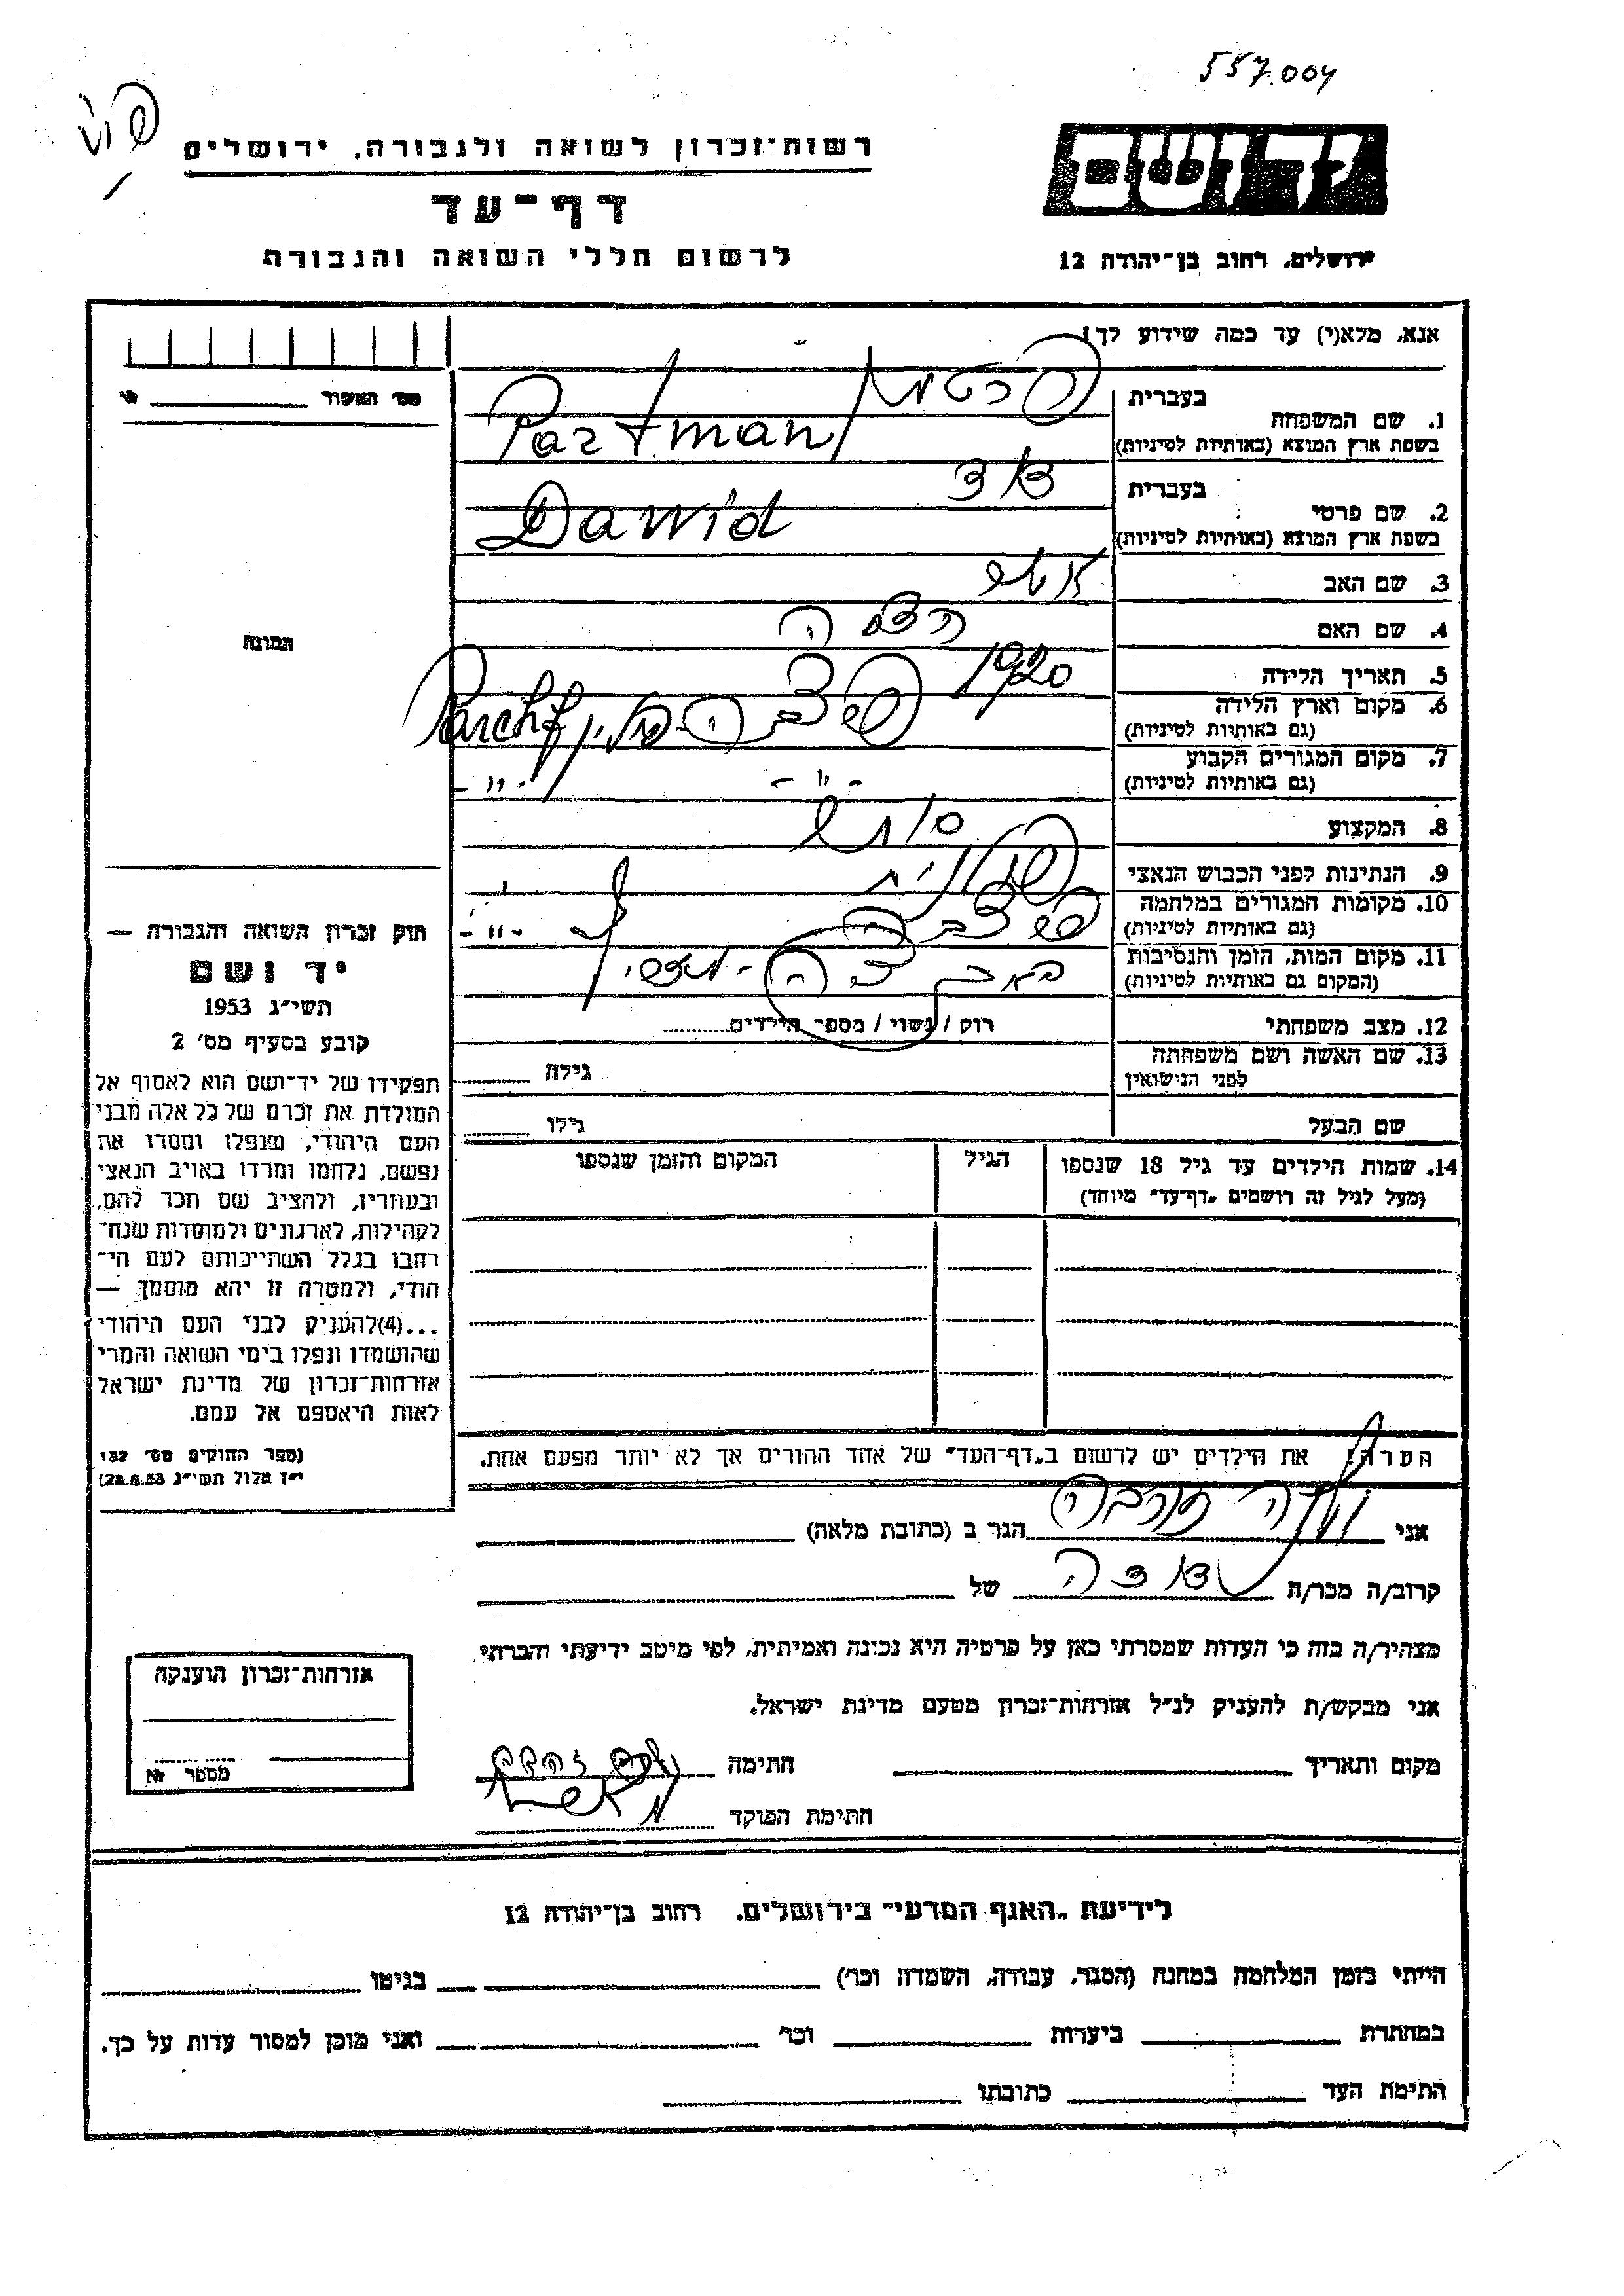 557.004
רשות־זכרון לשואה ולגבורה, ירושלים
דף־עד
לרשום חללי השואה והגבורה
יד ושם
ירושלים, רחוב בן־יהודה 12
אנא, מלא(י) עד כמה שידוע לך!
מס׳ האשור
1. שם המשפחה
בעברית פרטמן
בשפת ארץ המוצא (באותיות לטיניות) Partman
2. שם פרטי
בעברית דוד
בשפת ארץ המוצא (באותיות לטיניות) Dawid
3. שם האב
4. שם האם
5. תאריך הלידה 1920
6. מקום וארץ הלידה
(גם באותיות לטיניות) פולין
7. מקום המגורים הקבוע
(גם באותיות לטיניות) -"- -"-
8. המקצוע סוחר
9. הנתינות לפני הכבוש הנאצי פולנית
10. מקומות המגורים במלחמה
(גם באותיות לטיניות) -"-
11. מקום המות, הזמן והנסיבות
(המקום גם באותיות לטיניות)
12. מצב משפחתי רוק / נשוי / מספר הילדים
13. שם האשה ושם משפחתה
לפני הנישואין גילה
שם הבעל גילו
14. שמות הילדים עד גיל 18 שנספו
(מעל לגיל זה רושמים „דף־עד" מיוחד)
הגיל
המקום והזמן שנספו
תמונה
חוק זכרון השואה והגבורה —
יד ושם
תשי״ג 1953
קובע בסעיף מס׳ 2
תפקידו של יד־ושם הוא לאסוף אל
המולדת את זכרם של כל אלה מבני
העם היהודי, שנפלו ומסרו את
נפשם, נלחמו ומרדו באויב הנאצי
ובעוזריו, ולהציב שם וזכר להם,
לקהילות, לארגונים ולמוסדות שנח־
רבו בגלל השתייכותם לעם הי־
הודי, ולמטרה זו יהא מוסמך —
...(4) להעניק לבני העם היהודי
שהושמדו ונפלו בימי השואה והמרי
אזרחות־זכרון של מדינת ישראל
לאות היאספם אל עמם.
(ספר החוקים מס׳ 132
י״ז אלול תשי״ג 28.8.53)
הערה: את הילדים יש לרשום ב„דף־העד" של אחד ההורים אך לא יותר מפעם אחת.
אני הגר ב (כתובת מלאה)
קרוב/ה מכר/ה דודה של
מצהיר/ה בזה כי העדות שמסרתי כאן על פרטיה היא נכונה ואמיתית, לפי מיטב ידיעתי והכרתי.
אני מבקש/ת להעניק לנ״ל אזרחות־זכרון מטעם מדינת ישראל.
מקום ותאריך חתימה
חתימת הפוקד
אזרחות־זכרון הוענקה
מספר
לידיעת „האגף המדעי" בירושלים. רחוב בן־יהודה 12
הייתי בזמן המלחמה במחנה (הסגר, עבודה, השמדה וכו׳) בגיטו
במחתרת ביערות וכו׳ ואני מוכן למסור עדות על כך.
חתימת העד כתובתו